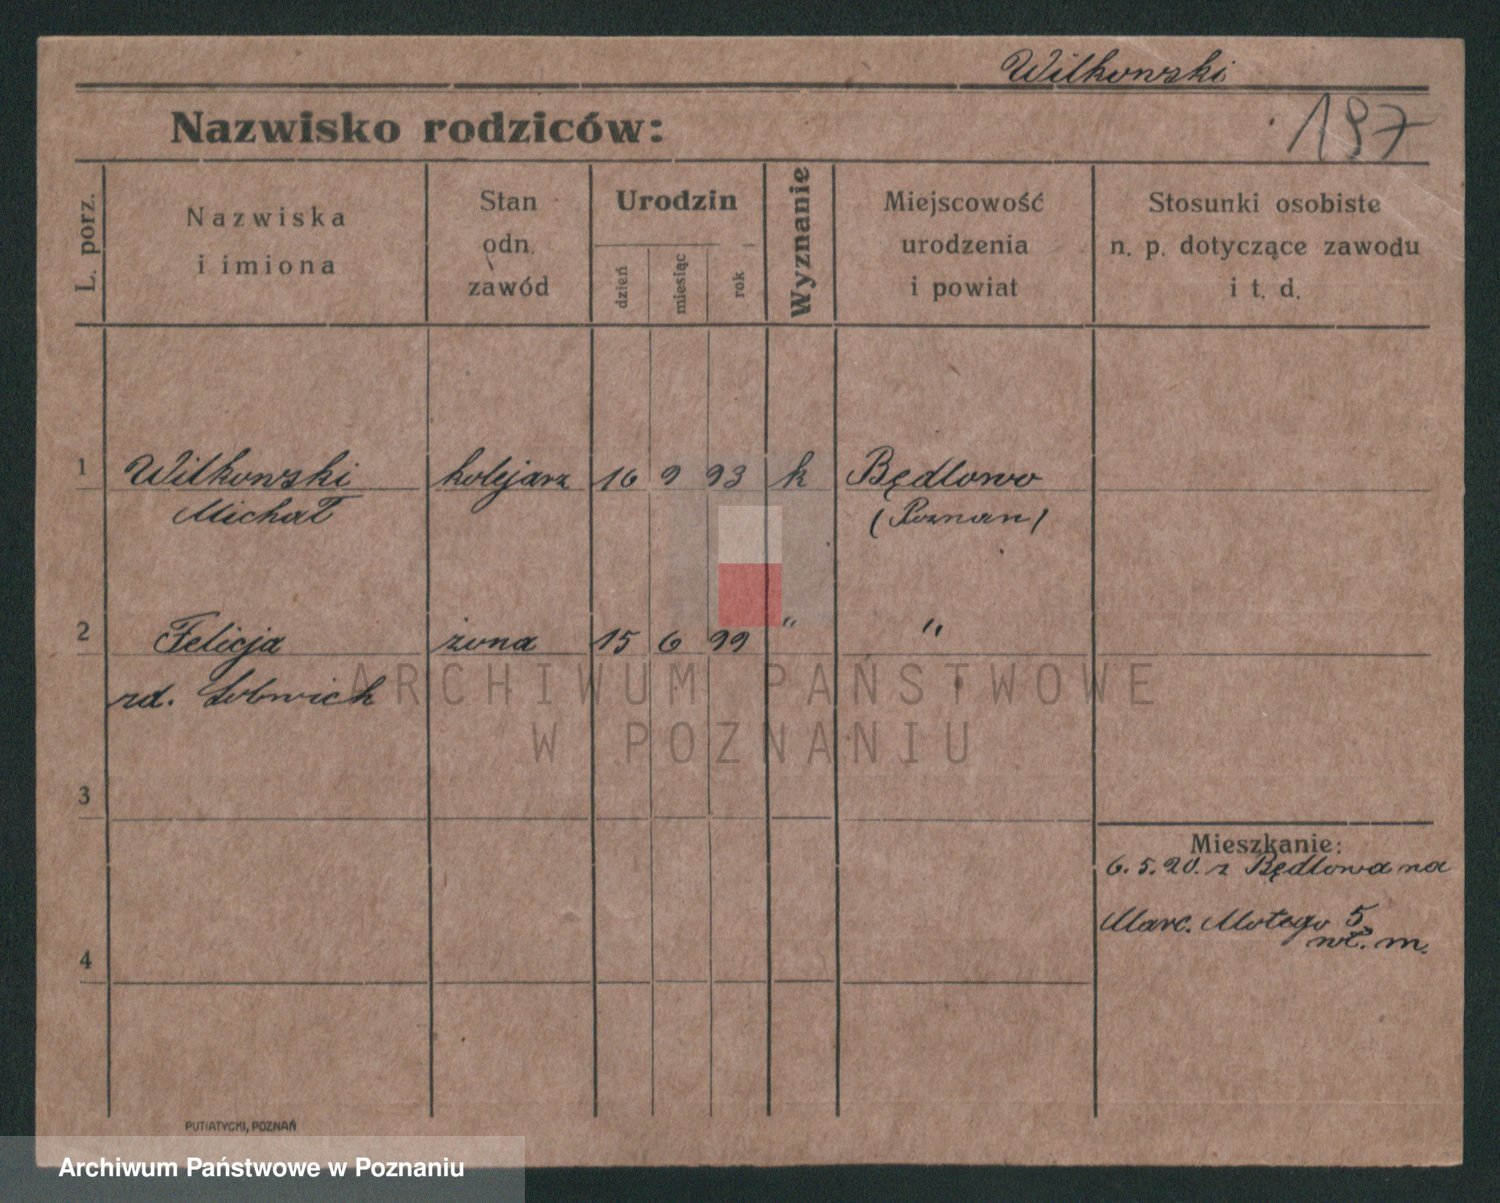 Witkowski
Nazwisko rodziców:
197
L. porz.
Nazwiska
i imiona
Stan
odn.
zawód
Urodzin
dzień
miesiąc
rok
Wyznanie
Miejscowość
urodzenia
i powiat
Stosunki osobiste
n. p. dotyczące zawodu
i t. d.
1 Witkowski kolejarz 16 9 93 k Będlowo
Michał (Poznan)
2 Felicja żona 15 6 99 " "
rd.
ARCHIWUM PAŃSTWOWE
W POZNANIU
3
Mieszkanie:
6. 5. 20. z Będlowa na
Marc. Motego 5
wł. m.
4
PUTIATYCKI, POZNAŃ
Archiwum Państwowe w Poznaniu